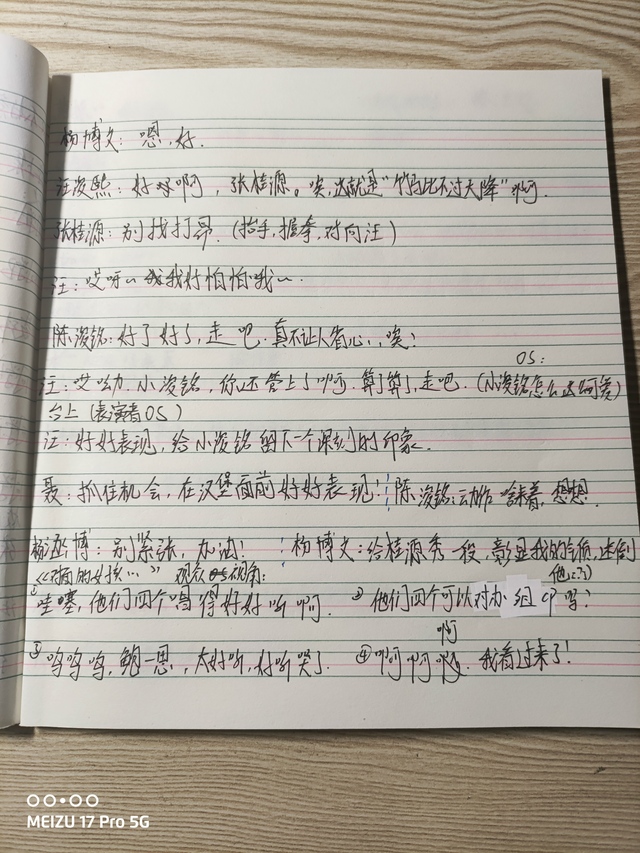 杨博文：嗯，好.
汪浚熙：好啊，张桂源。唉，这就是“竹马比不过天降”啊.
张桂源：别找打昂.(抬手,握拳,对向汪)
汪：哎呀~我好怕怕哦~.
陈浚铭:好了好了,走吧.真不让人省心,,唉?
OS:
汪：哎呦.小浚铭,你还管上了啊.算了算了,走吧.(小浚铭怎么这么可爱)
台上(表演者OS)
汪：好好表现,给小浚铭留下一个深刻的印象.
聂：抓住机会,在汉堡面前好好表现! 陈浚铭:动作 啥来着,想想.
博：别紧张,加油! 杨博文:给桂源秀一段,彰显我的气质,迷倒
《对面的女孩……》 观众视角: 他(?)
①哇塞,他们四个唱得好好听啊. ②他们四个可以对办组cp吗?
啊
③呜呜呜,鲍一恩,太好听,好听哭了. ④啊啊啊.我看过来了!
MEIZU 17 Pro 5G